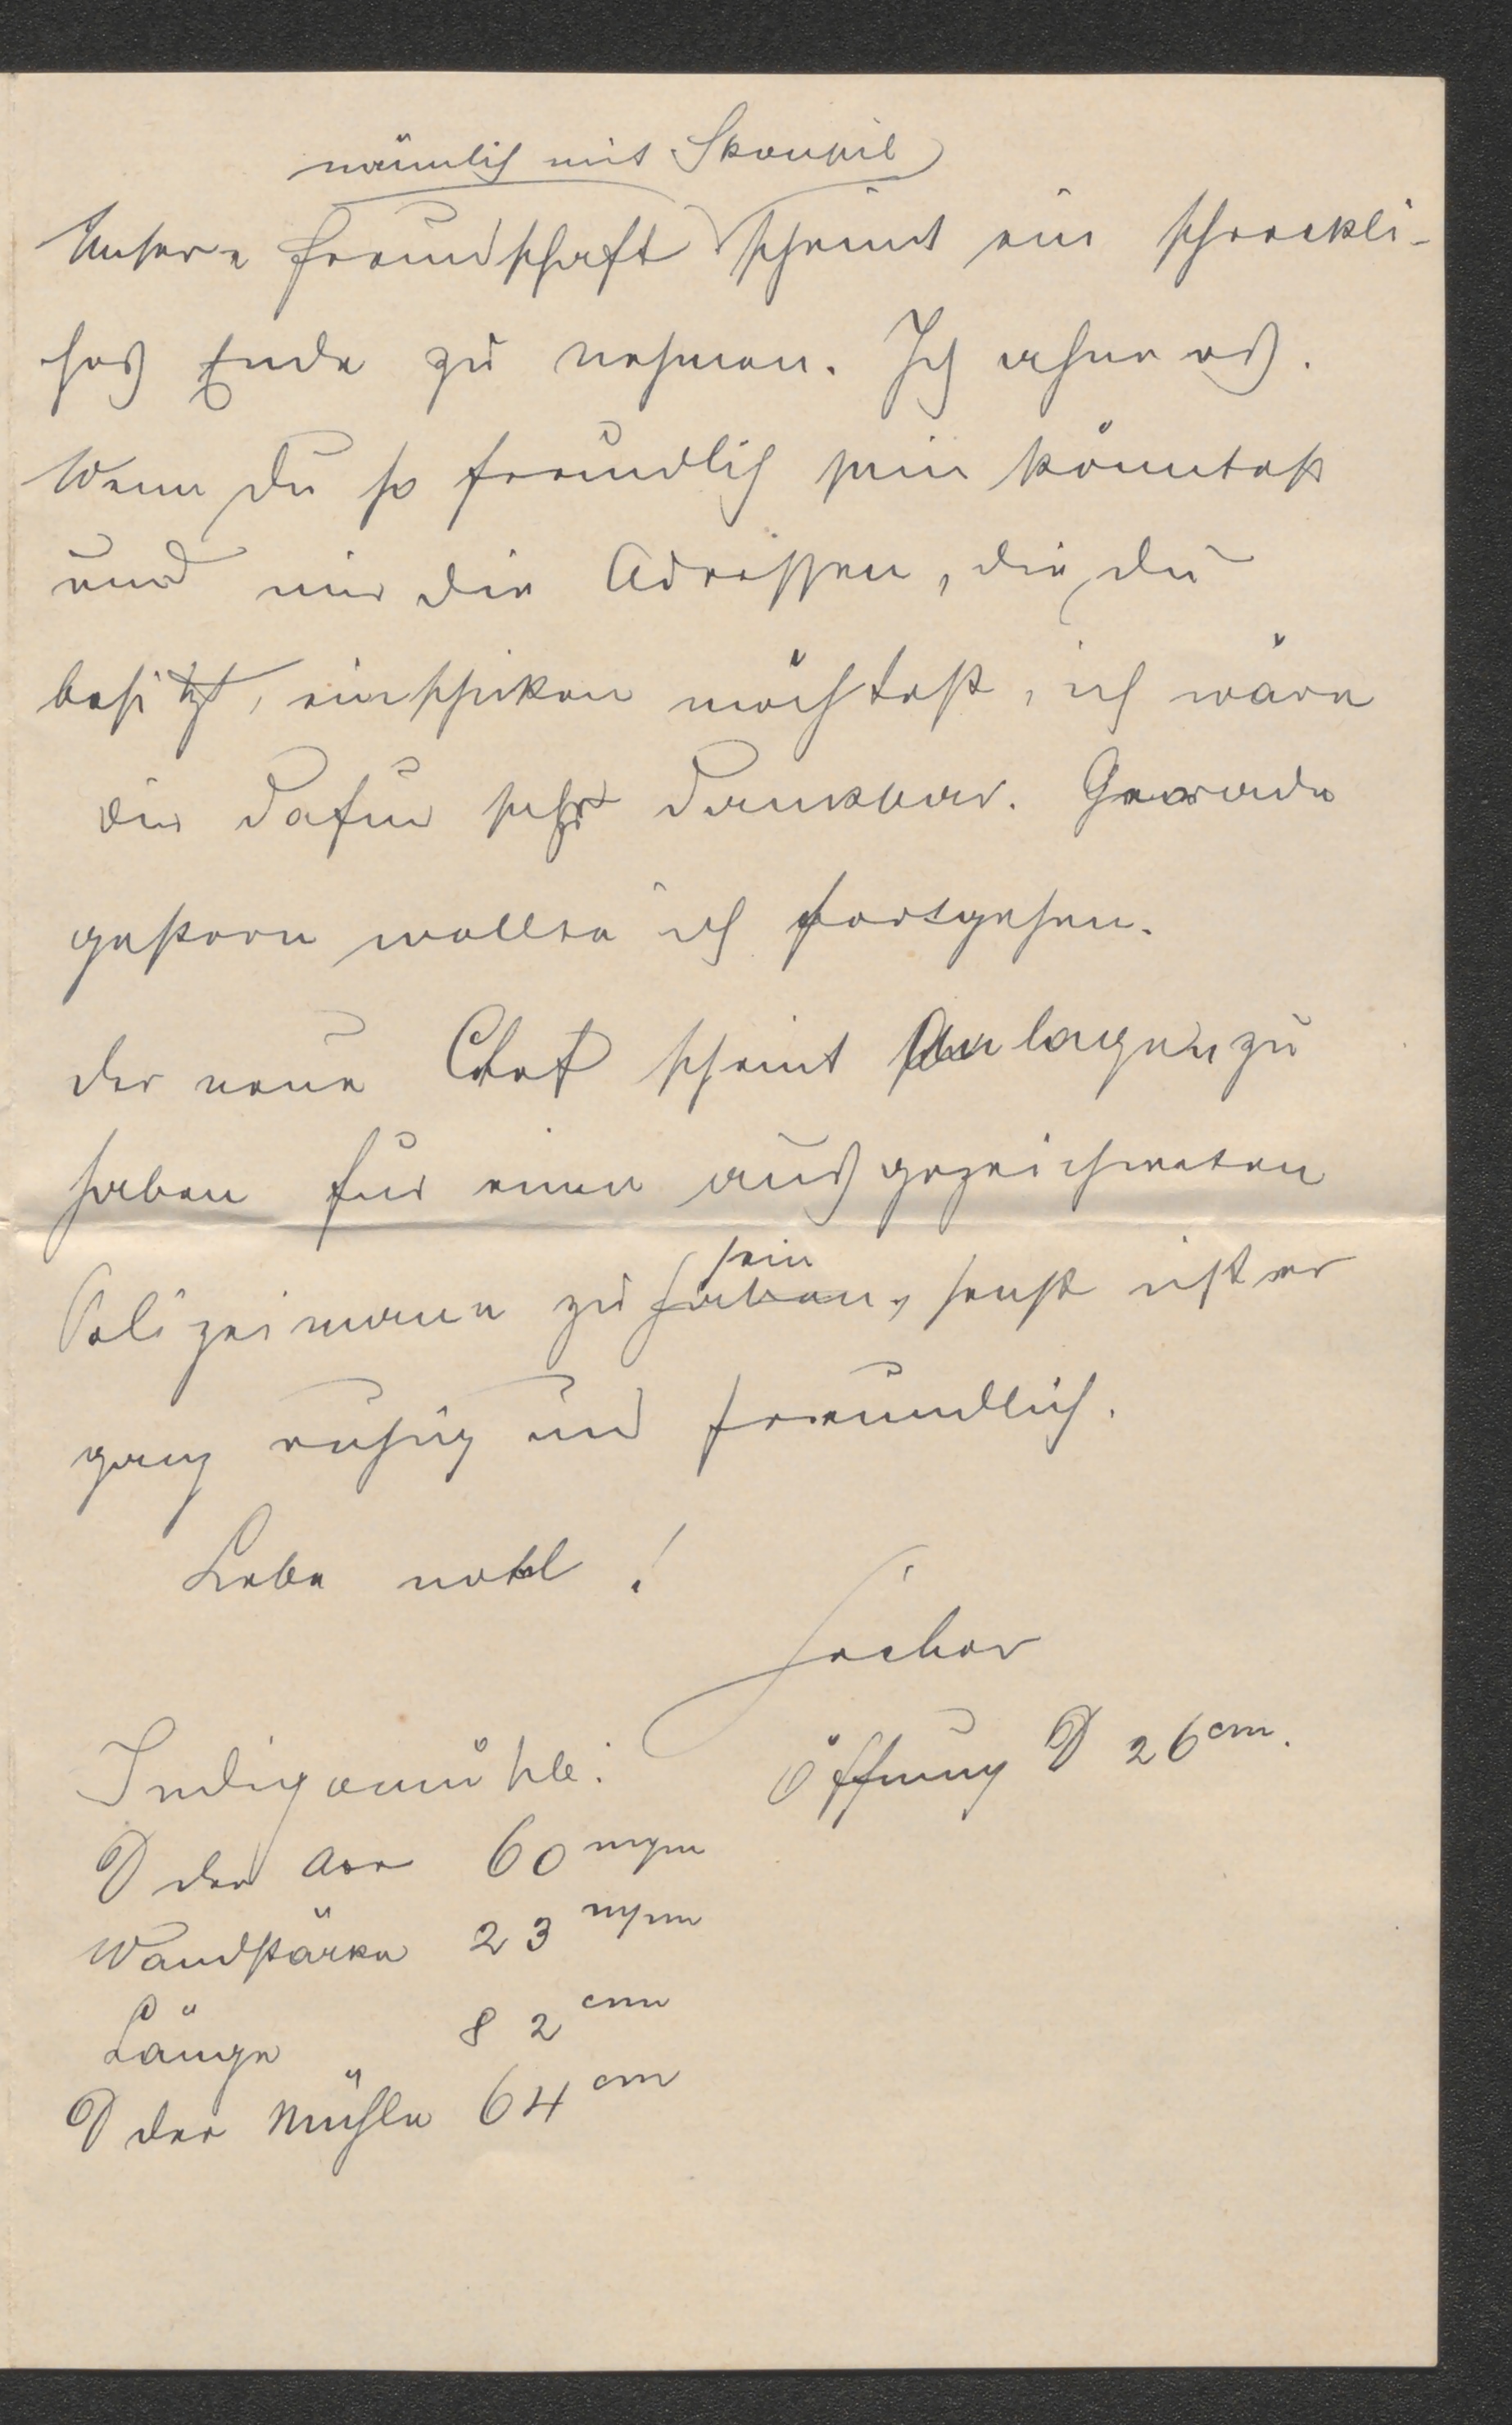 nämlich mit Skoupil
Unsere Freundschaft scheint ein schreckli-
ches Ende zu nehmen. Ich ahne es.
Wenn du so freundlich sein könntest
und mir die Adressen, die du
besitzt, einschiken möchtest, ich wäre
dir dafür sehr dankbar. Gerade
gestern wollte ich fortgehen.
Der neue Chef scheint Anlagen zu
haben für einen ausgezeichneten
sein
Polizeimann zu haben, sonst ist er
ganz ruhig und freundlich.
Lebe wohl!
Indigomühle: Öffnung D 26 cm.
D der Axe 60 mm
Wandstärke 23 mm
Länge 82 cm
D der Mühle 64 cm